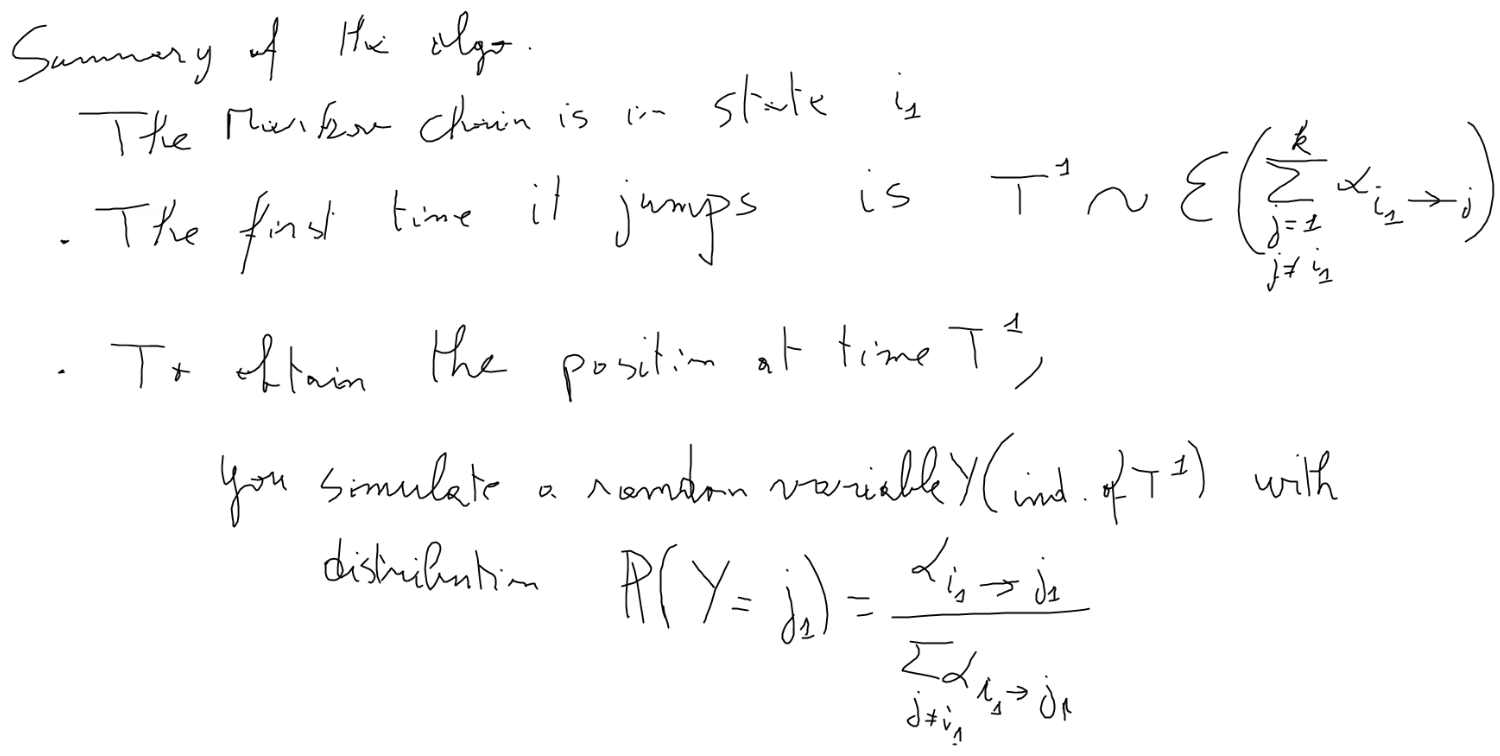 Summary of the algo.
The Markov chain is in state i₁
. The first time it jumps is T¹ ~ ℰ(∑_{j=1, j≠i₁}^{k} α_{i₁→j})
. To obtain the position at time T¹,
you simulate a random variable Y (ind. of T¹) with
distribution ℙ(Y = j₁) = α_{i₁→j₁} / ∑_{j≠i₁} α_{i₁→j₁}